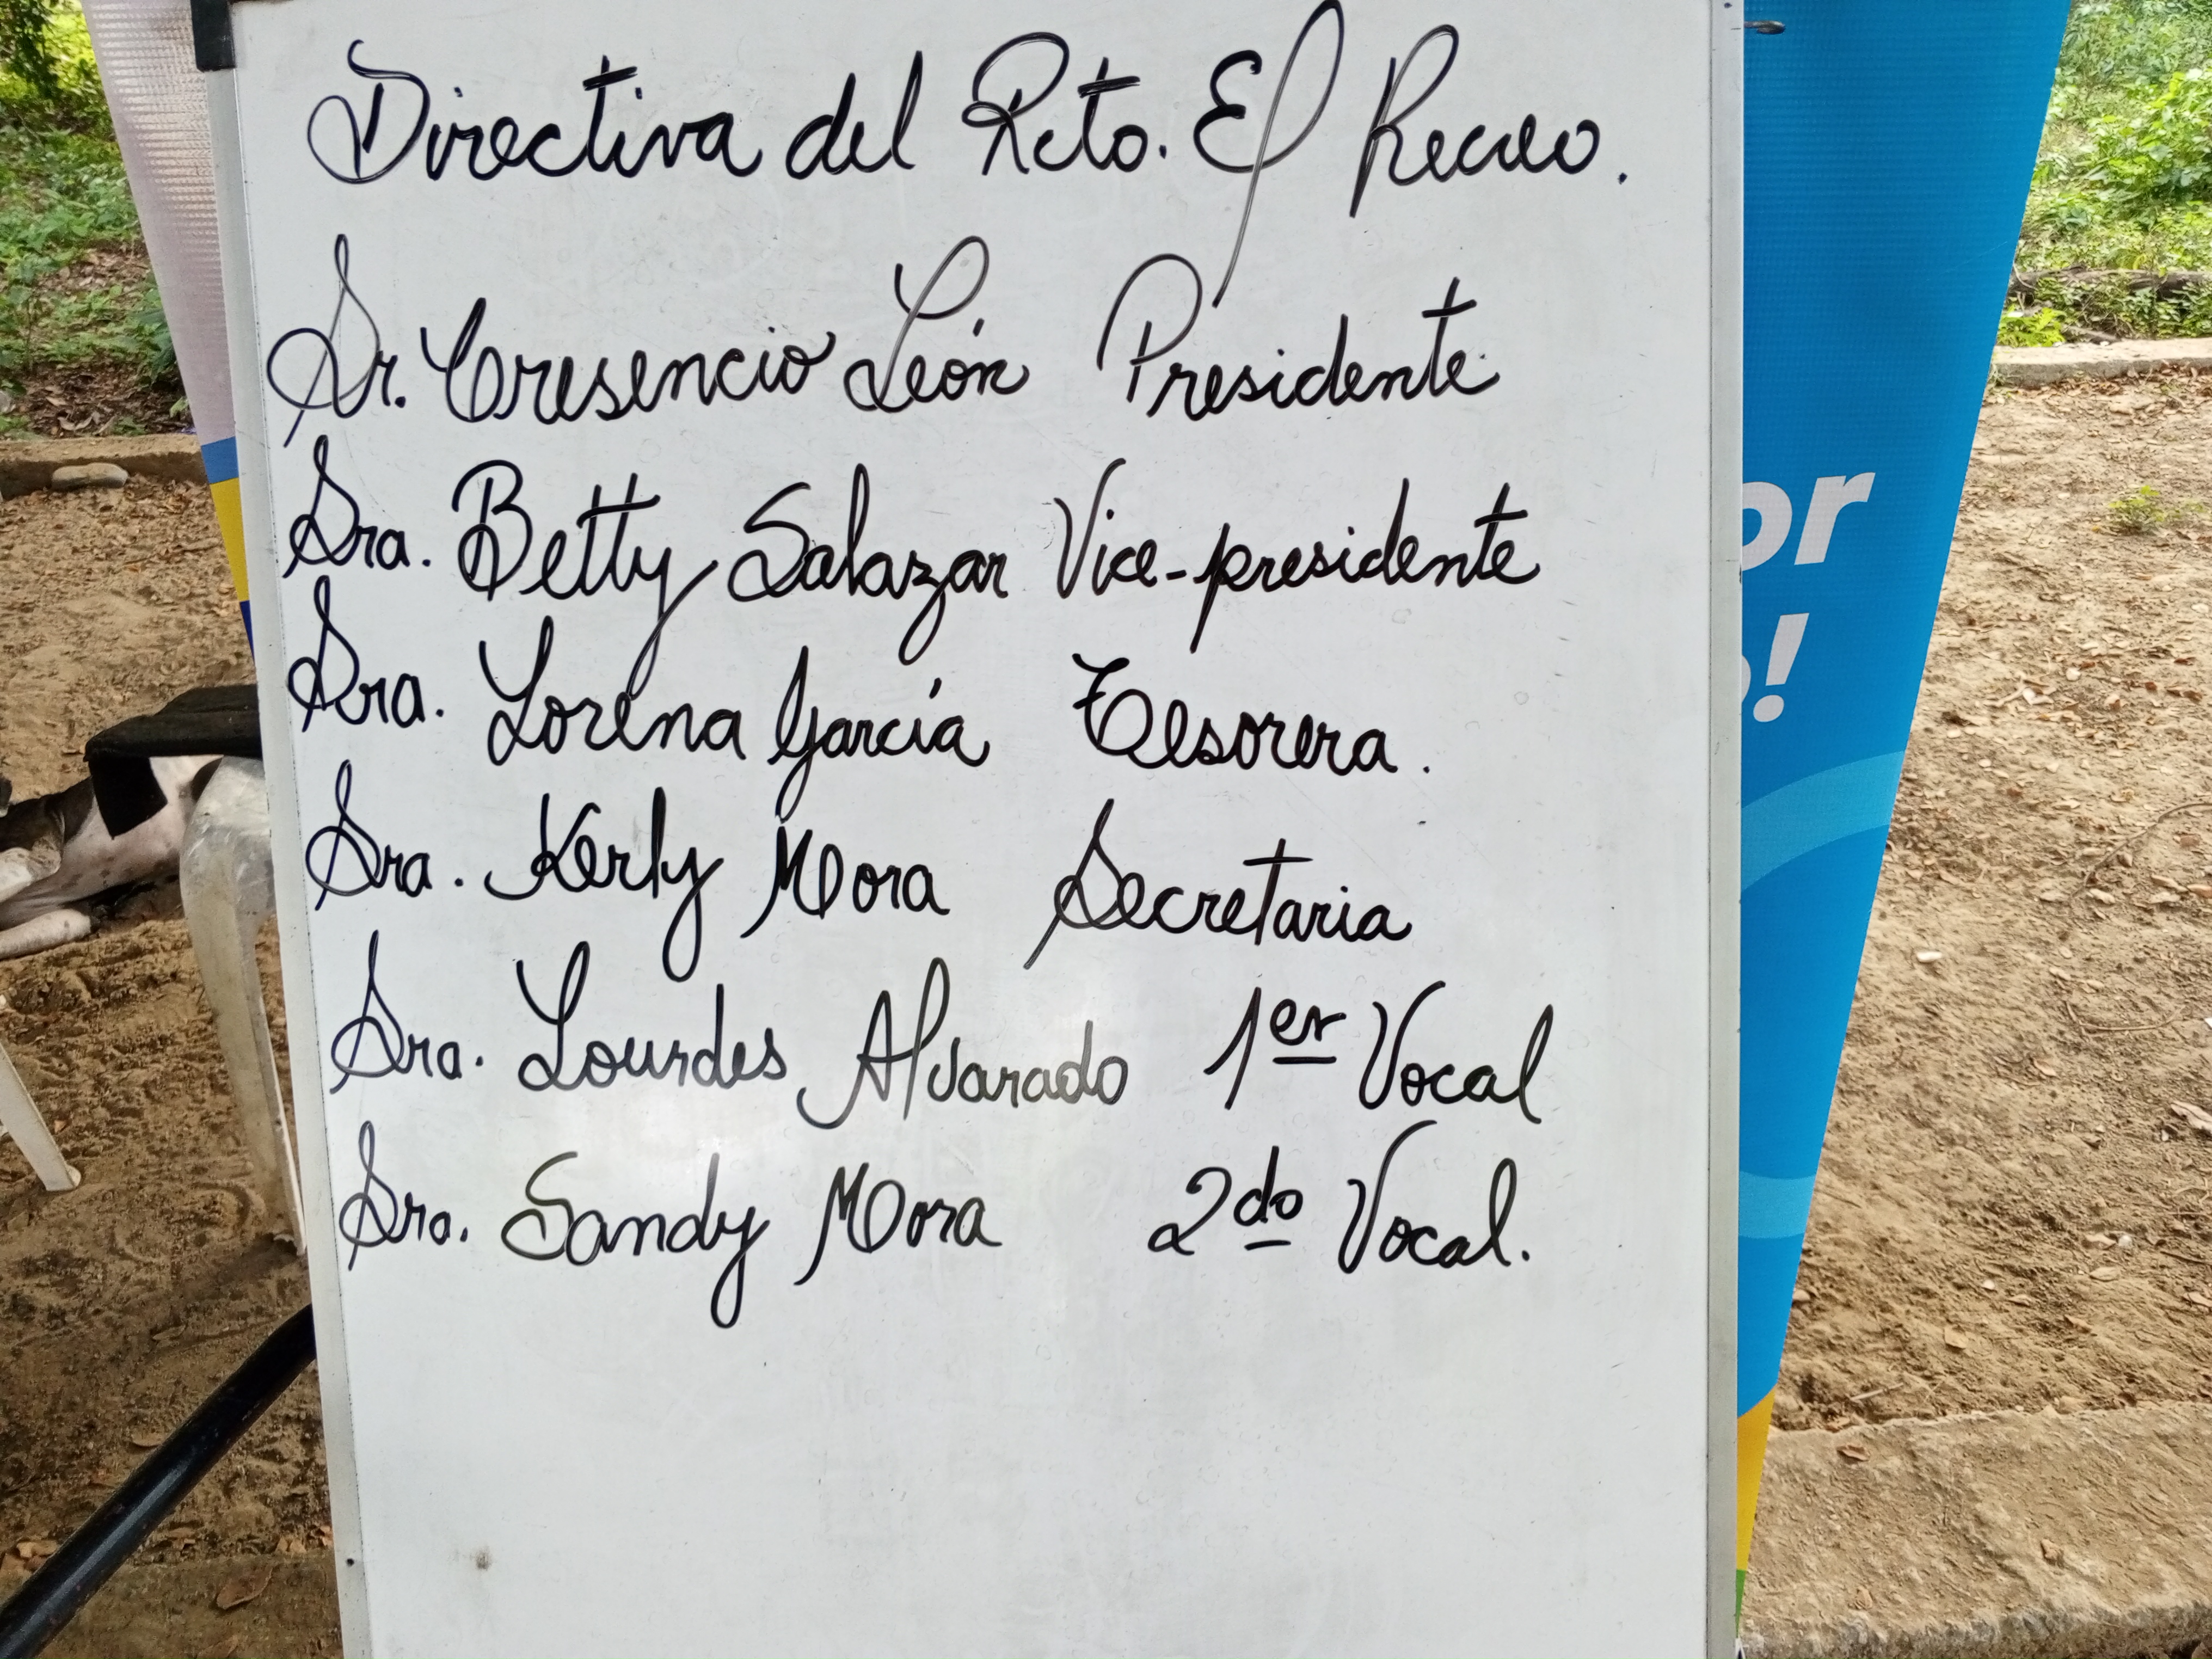 Directiva del Rcto. El Recreo.
Sr. Cresencio León Presidente
Sra. Betty Salazar Vice-presidente
Sra. Lorena García Tesorera.
Sra. Kerly Mora Secretaria
Sra. Lourdes Alvarado 1er Vocal
Sra. Sandy Mora 2do Vocal.
or
o!